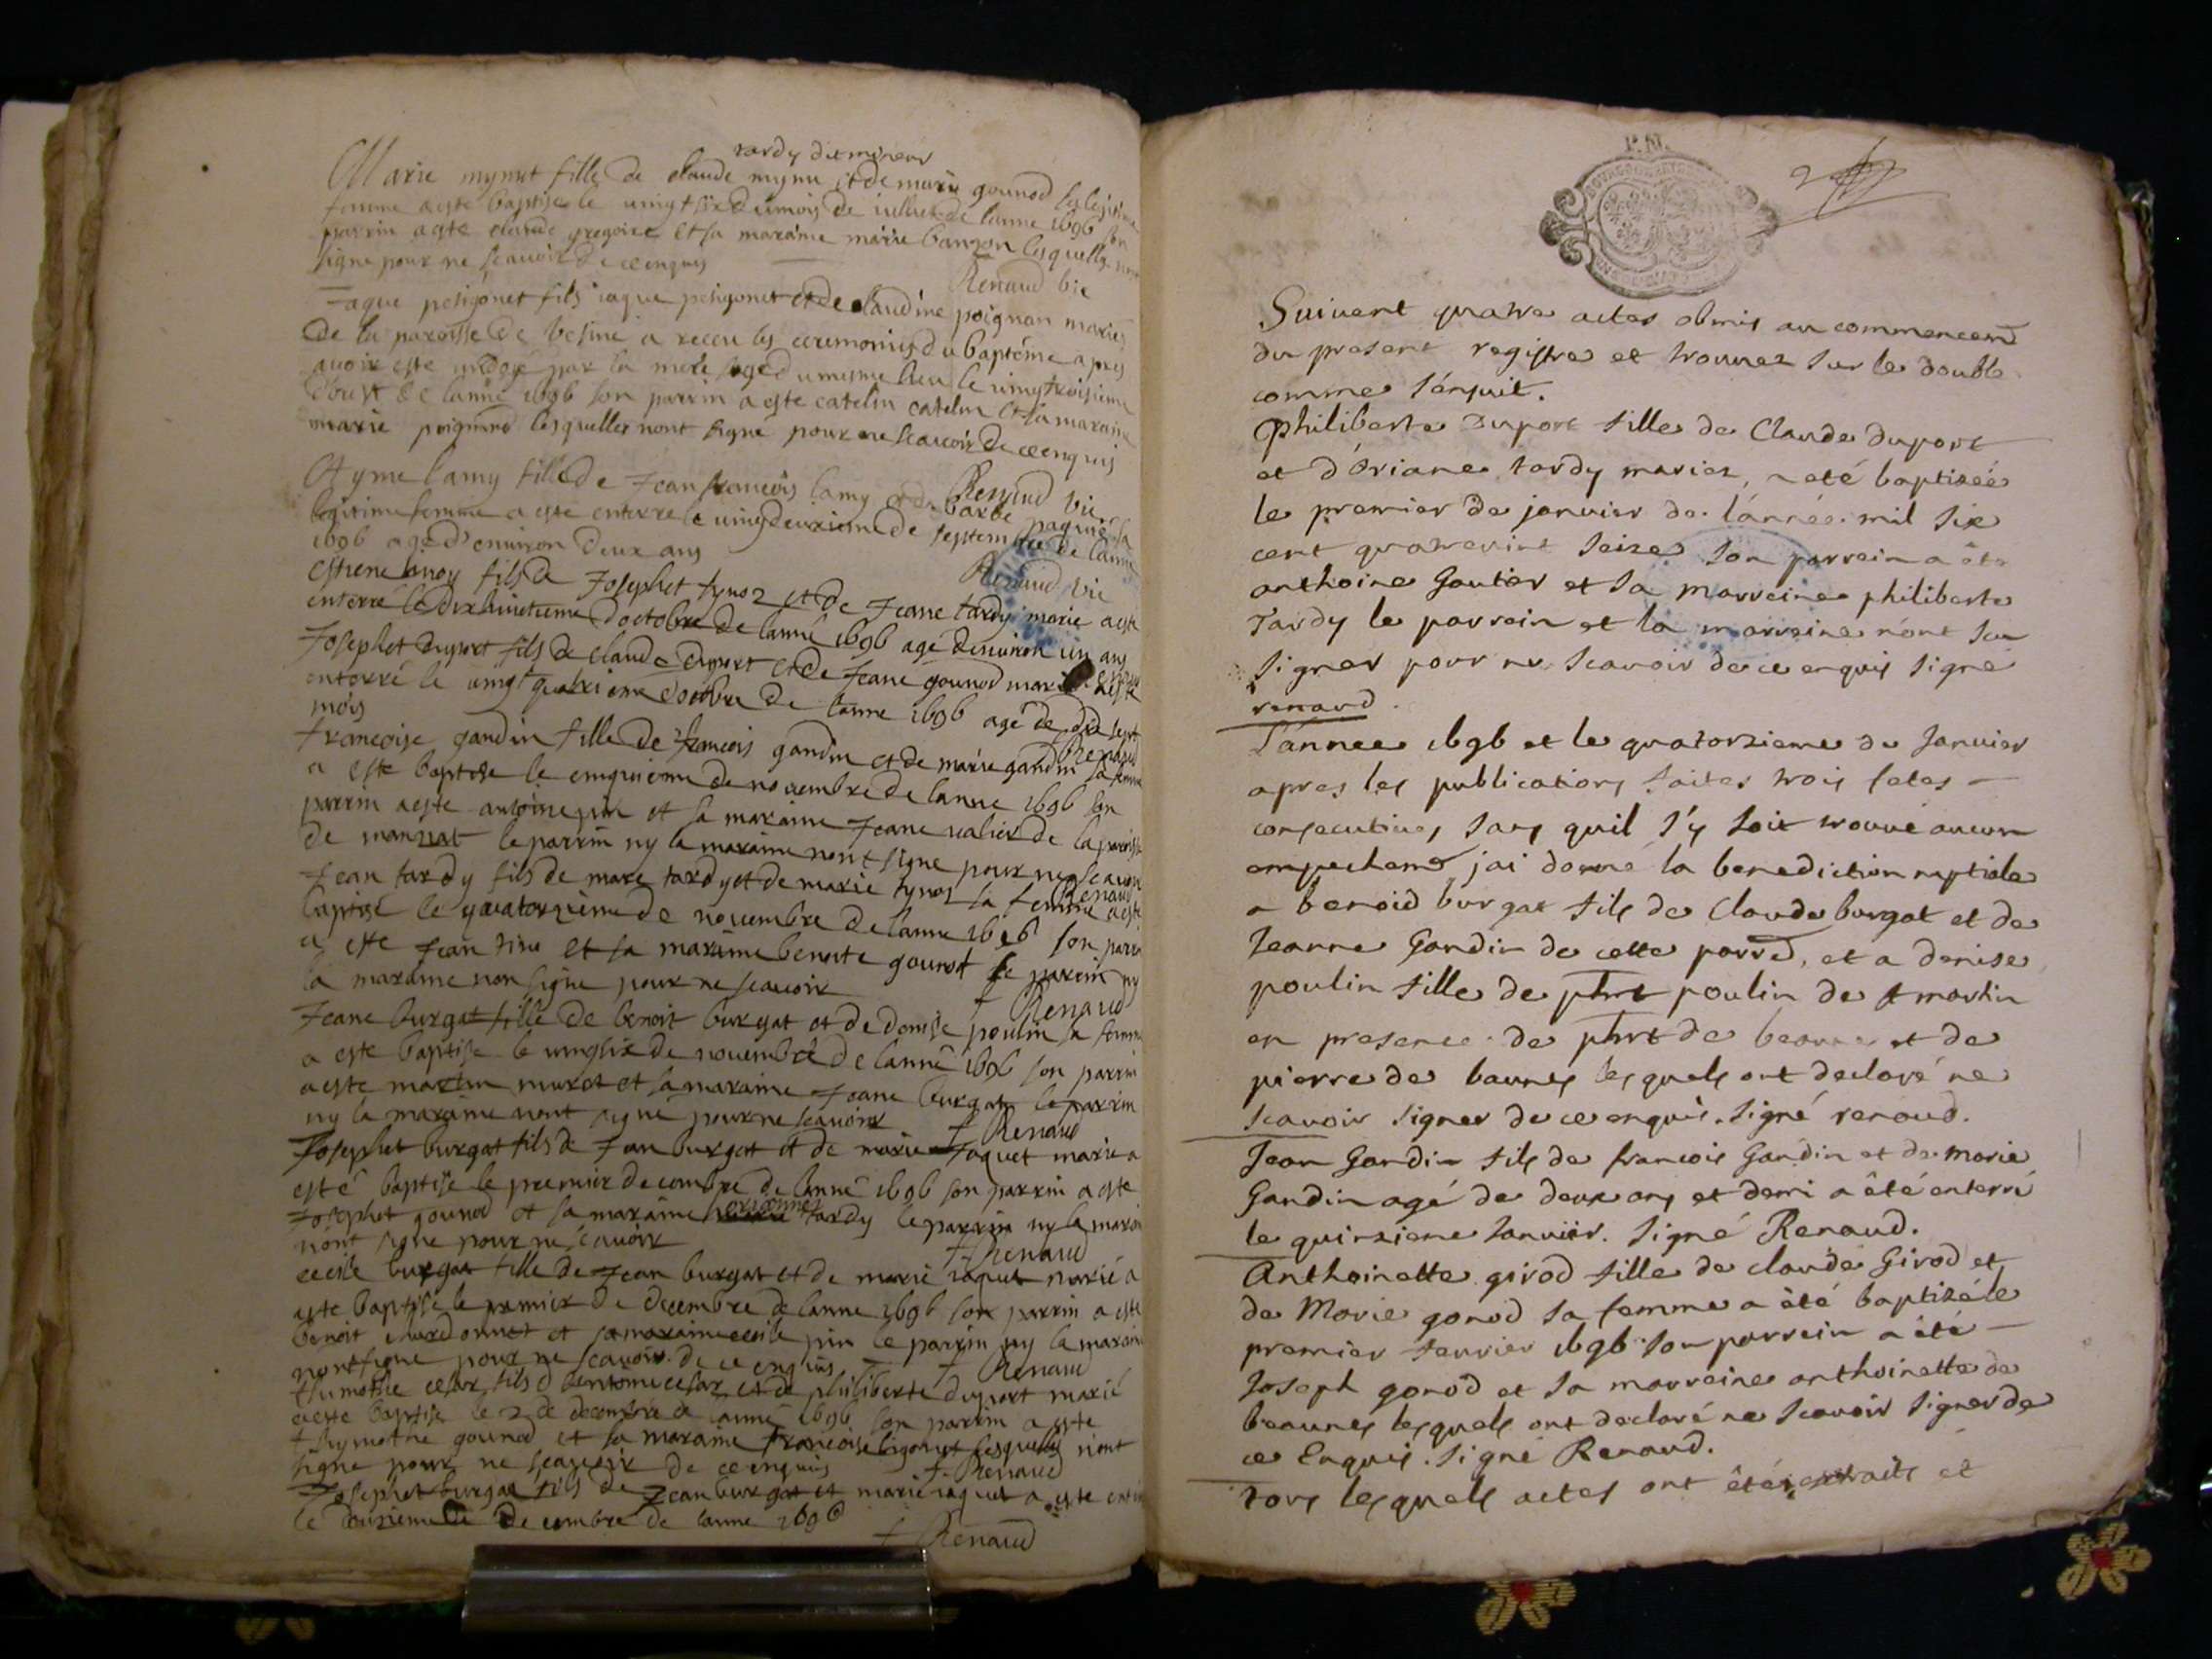 tardy dit mineur
Marie mynut fille de claude mynu et de marie gounod sa legitime
femme a este baptise le vingt six du mois de iulliet de lanne 1696 son
parrin a este claude gregoire et sa maraine marie banzon lesquelles nont
signe pour ne scauoir de ce enquis
Renaud vic
Jaque petigonet fils iaque petigonet et de claudine poignan maries
de la paroisse de besme a receu les ceremonies du baptéme apres
auoir este ondoye par la mere sage du mesme lieu le vingt troisieme
doust de lanne 1696 son parrin a este catelin catelin et sa maraine
marie poignand lesquelles nont signe pour ne scauoir de ce enquis
Renaud vic
Ayme lamy fille de Jean francois lamy et de barbe paquier sa
legitime femme a este enterre le vingt deuxieme de septembre de lanne
1696 age d'enuiron deux ans
Renaud vic
estiene fils de Josephet tynoz et de Jeane tardy marie a este
enterré le dix huictieme d'octobre de lanne 1696 age denuiron un ans
Josephet duport fils de claude duport et de Jeane gounod marie a este
enterré le vingt quatrieme doctobre de lanne 1696 age de dix sept
mois
Renaud
francoise gandin fille de francois gandin et de marie gandin sa femme
a este baptise le cinquieme de nouembre de lanne 1696 son
parrin a este antoine pin et sa maraine Jeane ualier de la paroisse
de marnat le parrin ny la maraine nont signe pour ne scauoir
Renaud
Jean tardy fils de marc tardy et de marie tynoz sa femme a este
baptisé le quatorzieme de nouembre de lanne 1696 son parrin
a este Jean tino et sa maraine benoite gounod le parrin ny
la maraine non signe pour ne scauoir
+ Renaud
Jeane burgat fille de benoit burgat et de denise poulin sa femme
a este baptise le vingt six de nouembre de lanne 1696 son parrin
a este martin muret et sa maraine Jeane burgat le parrin
ny la maraine nont signe pour ne scauoir
+ Renaud
Josephet burgat fils de Jean burgat et de marie Jaquet marie a
esté baptise le premier decembre de lanne 1696 son parrin a este
Josephet gounod et sa maraine orianne tardy le parrin ny la maraine
nont signe pour ne scauoir
+ Renaud
cecile burgat fille de Jean burgat et de marie iaquet marié a
este baptise le premier de decembre de lanne 1696 son parrin a este
benoit chardonnet et sa maraine cecile pin le parrin ny la maraine
nont signe pour ne scauoir de ce enquis
+ Renaud
thimothe cesar fils d'anthoine cesar et de philiberte duport marié
a este baptise le 2 de decembre de lanne 1696 son parrin a este
thymothe gounod et sa maraine francoise lesquelles n'ont
signe pour ne scauoir de ce enquis
+ Renaud
Josephet burgat fils de Jean burgat et marie iaquet a este enterré
le douzieme de decembre de lanne 1696
+ Renaud
Suivent quatre actes obmis au commencem̄t
du present registre et trouuez sur le double
comme s'ensuit.
philiberte Duport fille de Claude duport
et d'Oriane tardy mariez, a eté baptizée
le premier de janvier de l'année mil six
cent quatrevint seize son parrein a été
anthoine Gautier et sa marreine philiberte
Tardy le parrein et la marreine n'ont sçu
signer pour ne scauoir de ce enquis signé
renaud.
L'annee 1696 et le quatorzieme de Janvier
apres les publications faites trois fetes
consecutiues sans quil s'y soit trouué aucun
empechem̄t jai donné la benediction nuptiale
a benoid burgat fils de Claude burgat et de
Jeanne Gandin de cette parr̄e, et a denise
poulin fille de phr̄t poulin de st martin
en presence de phr̄t de beaunes et de
pierre de baunes lesquels ont declaré ne
scauoir signer de ce enquis. signé renaud.
Jean Gandin fils de francois Gandin et de marie
Gandin agé de deux ans et demi a été enterré
le quinzieme Janvier. signé Renaud.
Anthoinette girod fille de claude Girod et
de Marie gonod sa femme a été baptizée le
premier fevrier 1696 son parrein a été
Joseph gonod et sa marreine anthoinette de
beaunes lesquels ont declaré ne scauoir signer de
ce Enquis. signé Renaud.
Tous lesquels actes ont étés extraits et